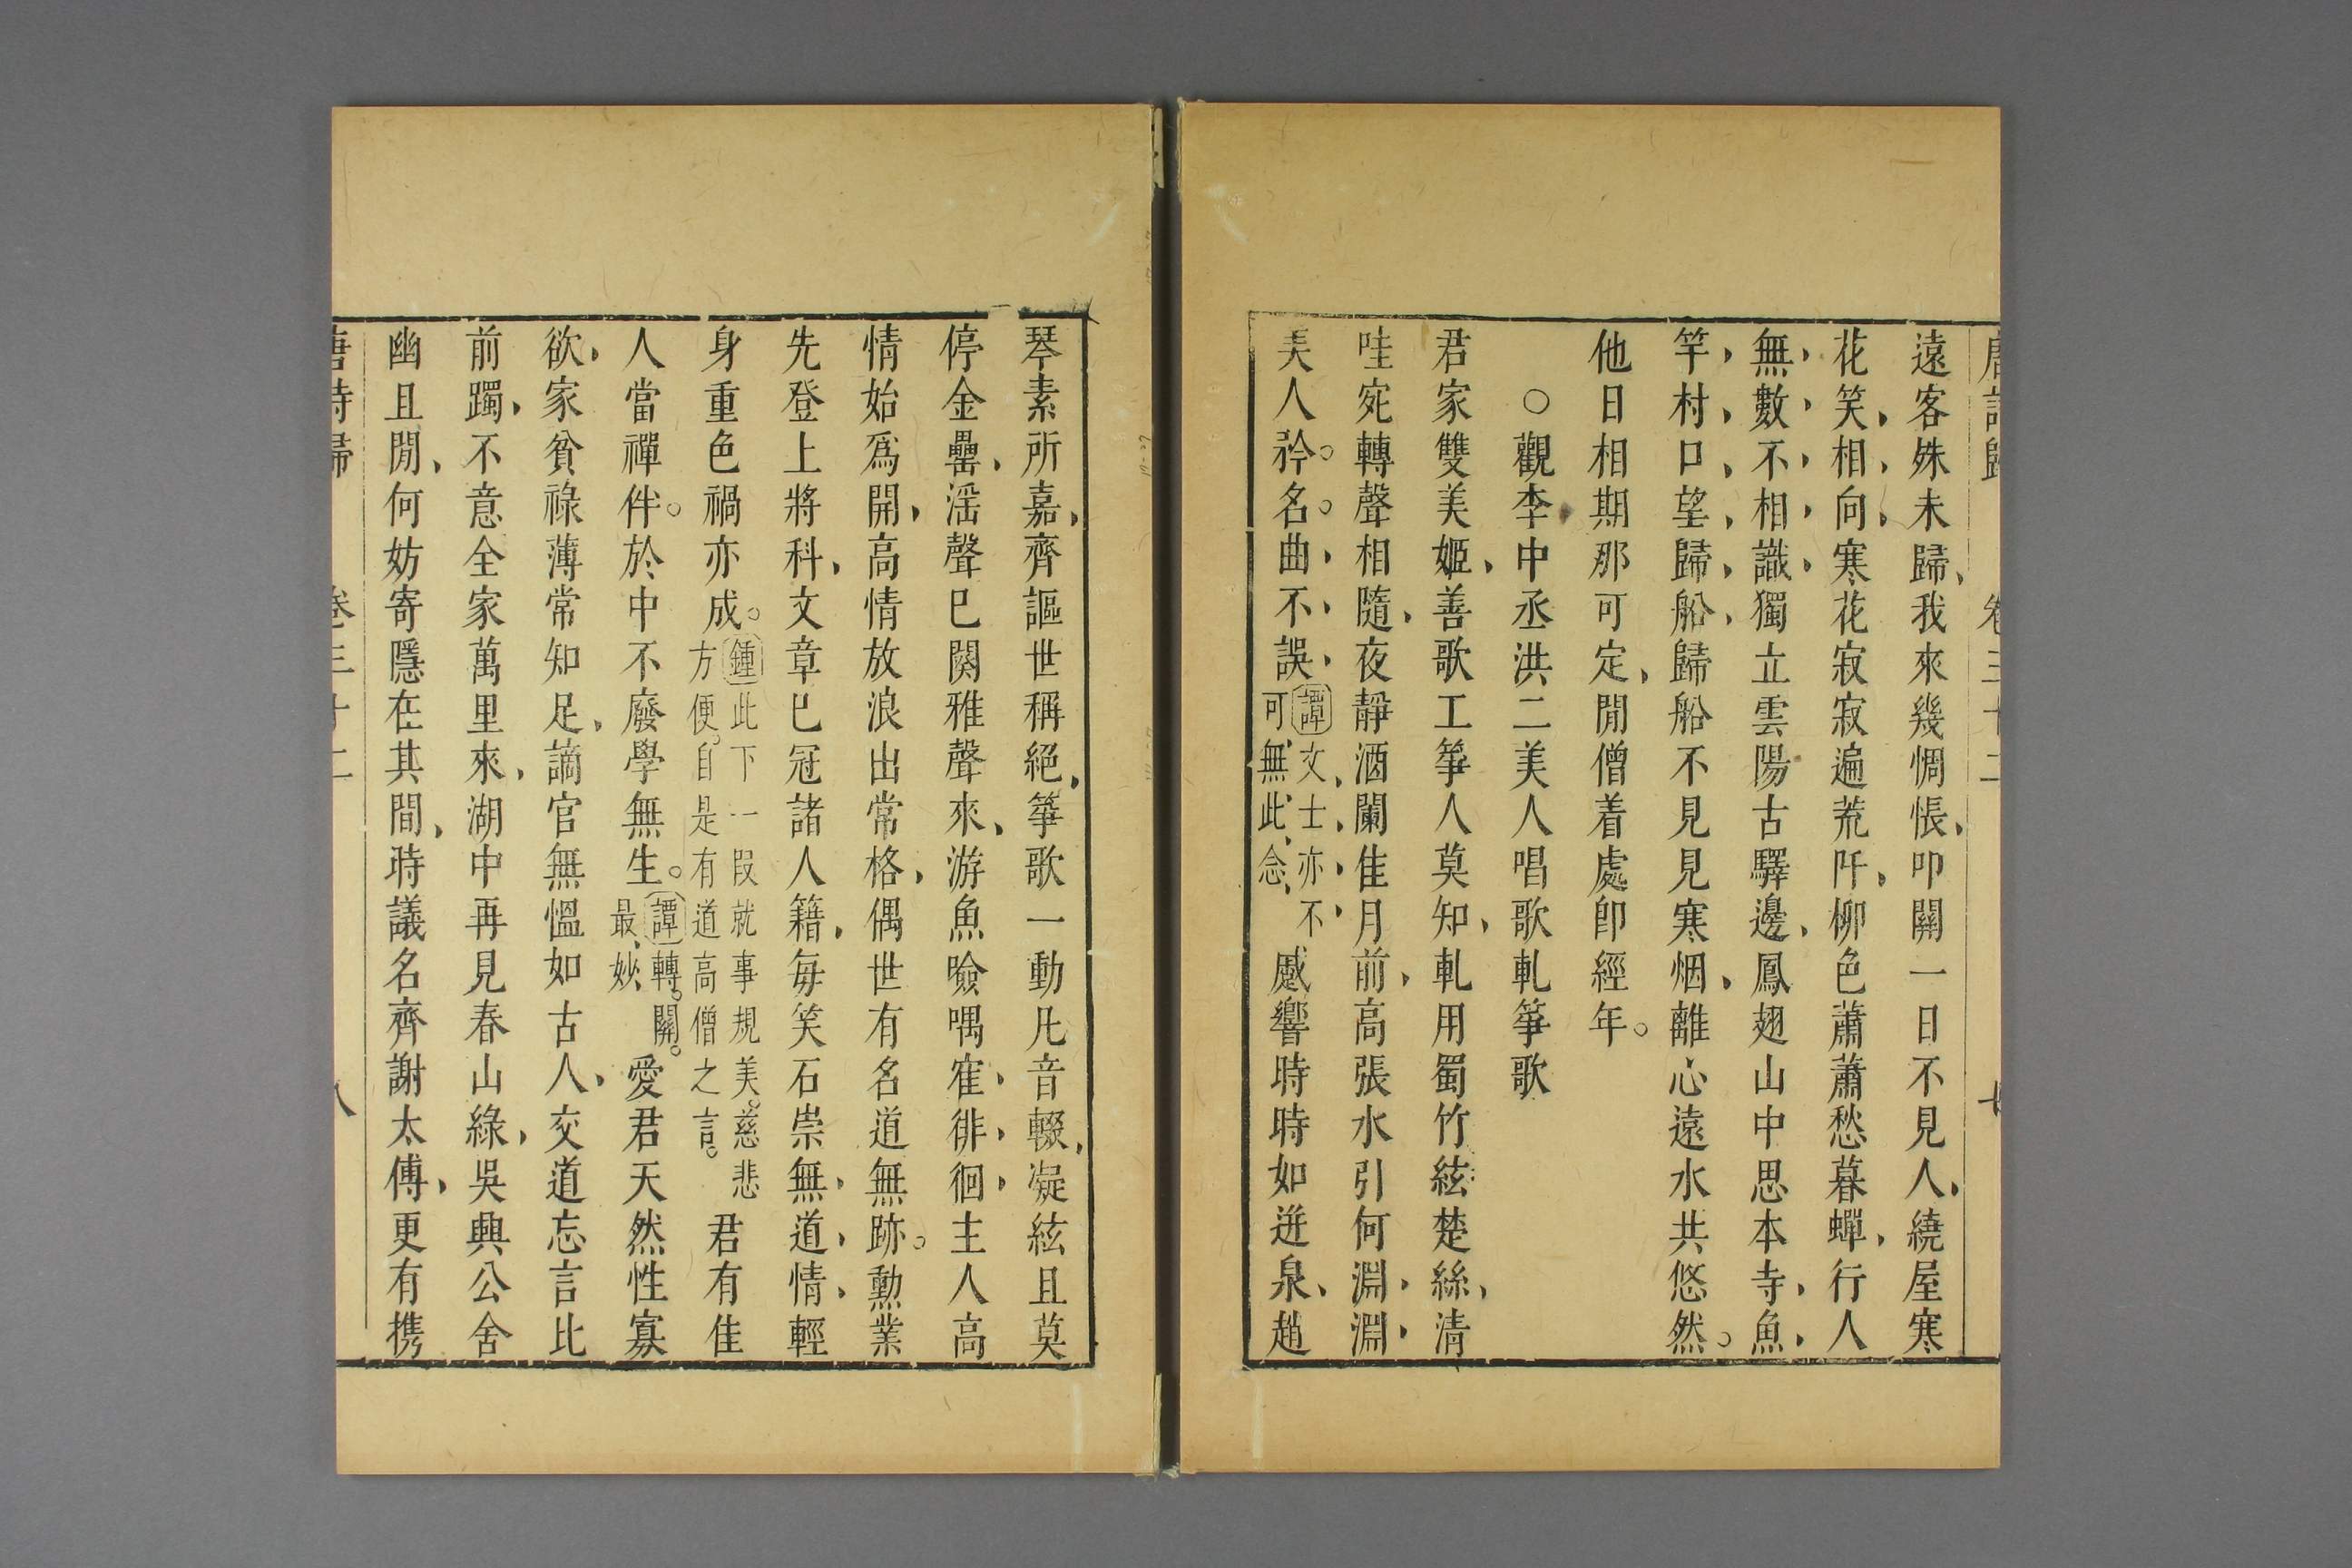 唐詩歸 卷三十二
遠客殊未歸我來幾惆悵叩關一日不見人繞屋寒
花笑相向寒花寂寂遍荒阡柳色蕭蕭愁暮蟬行人
無數不相識獨立雲陽古驛邊鳳翅山中思本寺魚
竿村口望歸船歸船不見見寒烟離心遠水共悠然
他日相期那可定閒僧着處卽經年
○觀李中丞洪二美人唱歌軋箏歌
君家雙美姬善歌工箏人莫知軋用蜀竹絃楚絲清
哇宛轉聲相隨夜靜酒闌佳月前高張水引何淵淵
美人矜名曲不誤
譚文士亦不
可無此念
蹙響時時如迸泉趙
琴素所嘉齊謳世稱絕箏歌一動凡音輟凝絃且莫
停金罍淫聲已闋雅聲來游魚噞喁隺徘徊主人高
情始爲開高情放浪出常格偶世有名道無跡勳業
先登上將科文章已冠諸人籍每笑石崇無道情輕
身重色禍亦成
鍾此下一段就事規美慈悲
方便自是有道高僧之言
君有佳
人當禪伴於中不廢學無生
譚轉關
最妙
愛君天然性寡
欲家貧祿薄常知足謫官無慍如古人交道忘言比
前躅不意全家萬里來湖中再見春山綠吳興公舍
幽且閒何妨寄隱在其間時議名齊謝太傅更有攜
唐詩歸 卷三十二 八